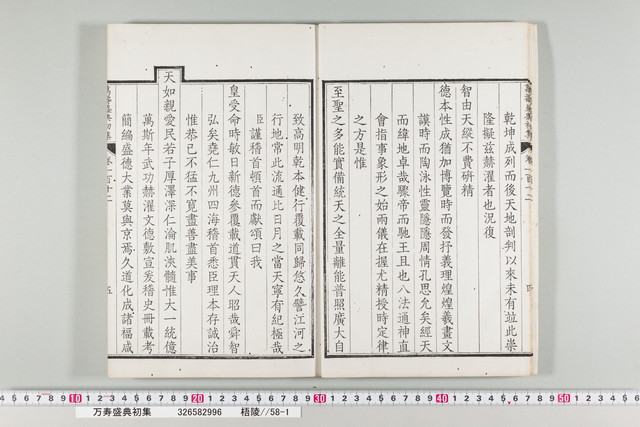 乾坤成列而後天地剖判以來未有並此崇
隆擬茲赫濯者也況復
智由天縱不費硏精
德本性成猶加博覽時而發抒義理煌煌羲畫文
謨時而陶泳性靈隱隱周情孔思允矣經天
而緯地卓哉驟帝而馳王且也八法通神直
會指事象形之始兩儀在握尤精授時定律
之方是惟
至聖之多能實備統天之全量離能普照廣大自
致高明乾本健行覆載同歸悠久譬江河之
行地常此流通比日月之當天寧有紀極哉
臣謹稽首頓首而獻頌曰我
皇受命時敏日新德參覆載道貫天人昭哉舜智
弘矣堯仁九州四海稽首悉臣理本存誠治
惟恭己不猛不寬盡善盡美事
天如親愛民若子厚澤深仁淪肌浹髓惟大一統億
萬斯年武功赫濯文德敷宣爰稽史冊載考
簡編盛德大業莫與京焉久道化成諸福咸
萬壽盛典初集
卷一百十二
五
10 20 30 40 50
万寿盛典初集 326582996 梧陵//58-1